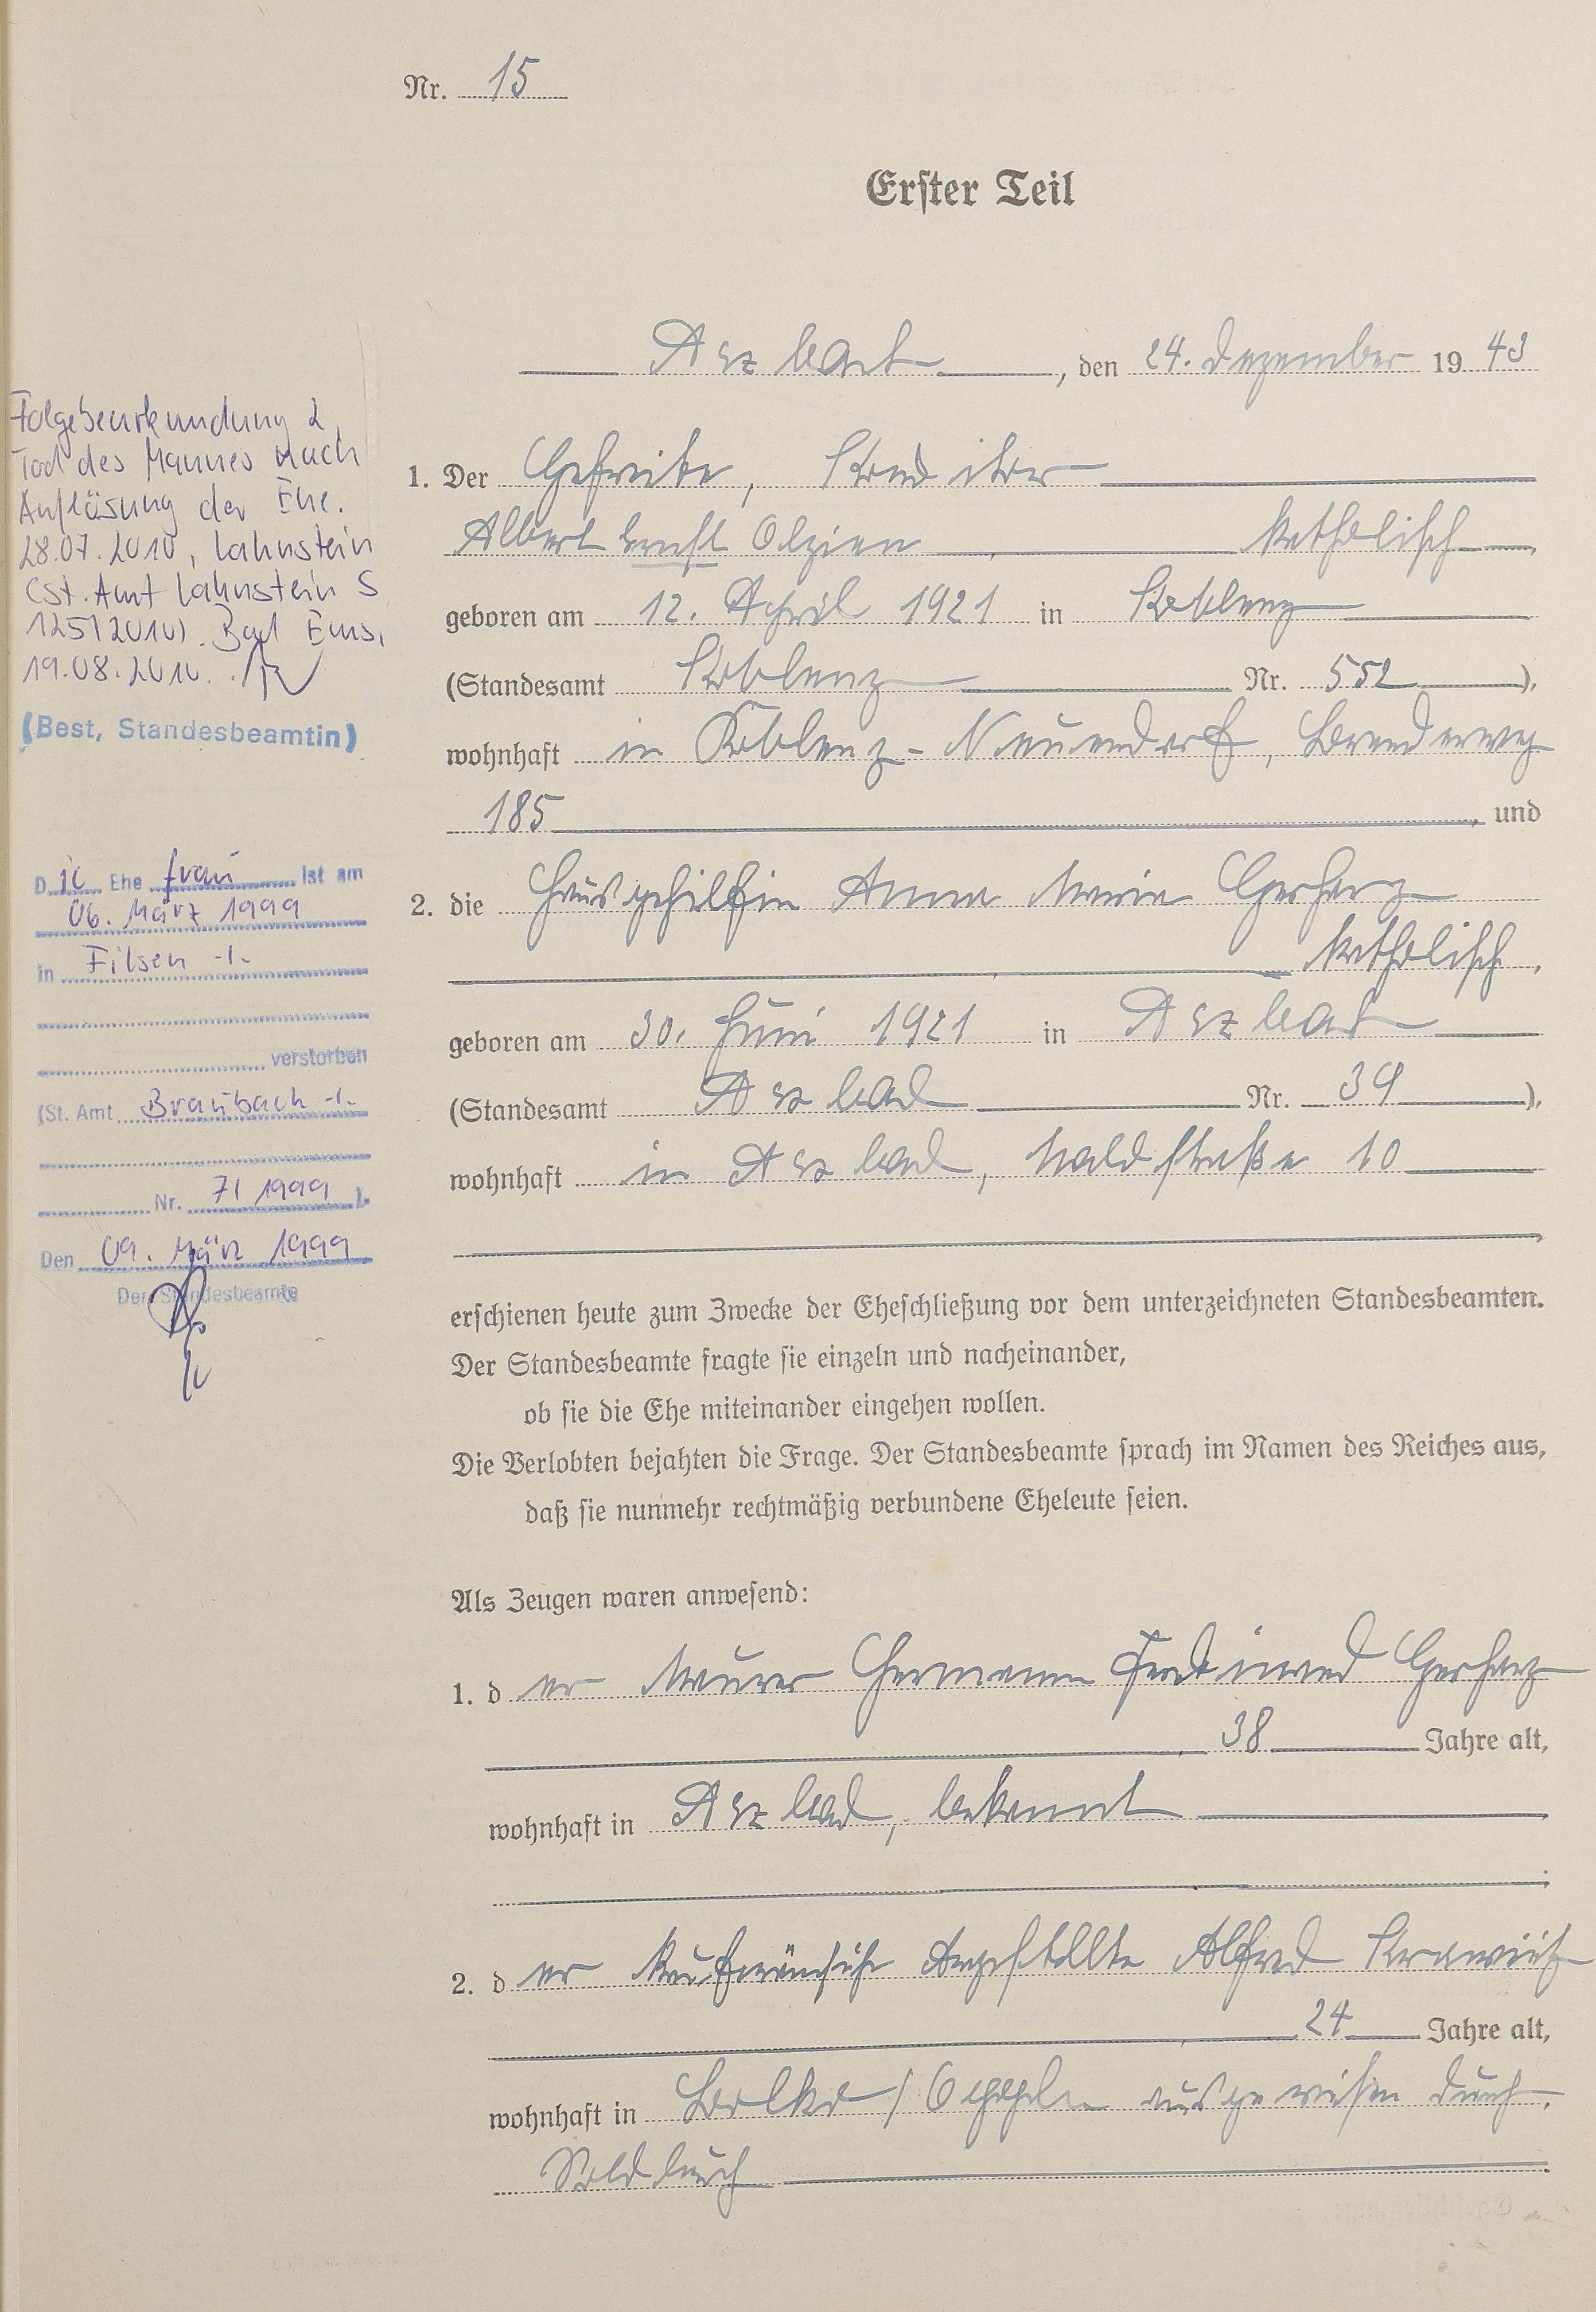 Nr. 15
Erster Teil
Arzbach, den 24. Dezember 1943
1. Der Gefreite, Konditor
Albert Ernst Olzien, katholisch,
geboren am 12. April 1921 in Koblenz
(Standesamt Koblenz Nr. 552),
wohnhaft in Koblenz-Neuendorf, Brenderweg
185, und
2. die Hausgehilfin Anna Maria Gerharz
, katholisch,
geboren am 30. Juni 1921 in Arzbach
(Standesamt Arzbach Nr. 39),
wohnhaft in Arzbach, Waldstraße 10
,
erschienen heute zum Zwecke der Eheschließung vor dem unterzeichneten Standesbeamten.
Der Standesbeamte fragte sie einzeln und nacheinander,
ob sie die Ehe miteinander eingehen wollen.
Die Verlobten bejahten die Frage. Der Standesbeamte sprach im Namen des Reiches aus,
daß sie nunmehr rechtmäßig verbundene Eheleute seien.
Als Zeugen waren anwesend:
1. der Maurer Hermann Ferdinand Gerharz
, 38 Jahre alt,
wohnhaft in Arzbach, bekannt
;
2. der kaufmännische Angestellte Alfred
, 24 Jahre alt,
wohnhaft in / Oppeln ausgewiesen durch
Soldbuch.
Folgebeurkundung 2,
Tod des Mannes nach
Auflösung der Ehe.
28.07.2010, Lahnstein
(St. Amt Lahnstein S
125/2010). Bad Ems,
19.08.2010.
(Best, Standesbeamtin)
Die Ehefrau ist am
06. März 1999
in Filsen -/-
verstorben
(St. Amt Braubach -/-
Nr. 7/1999).
Den 09. März 1999
Der Standesbeamte